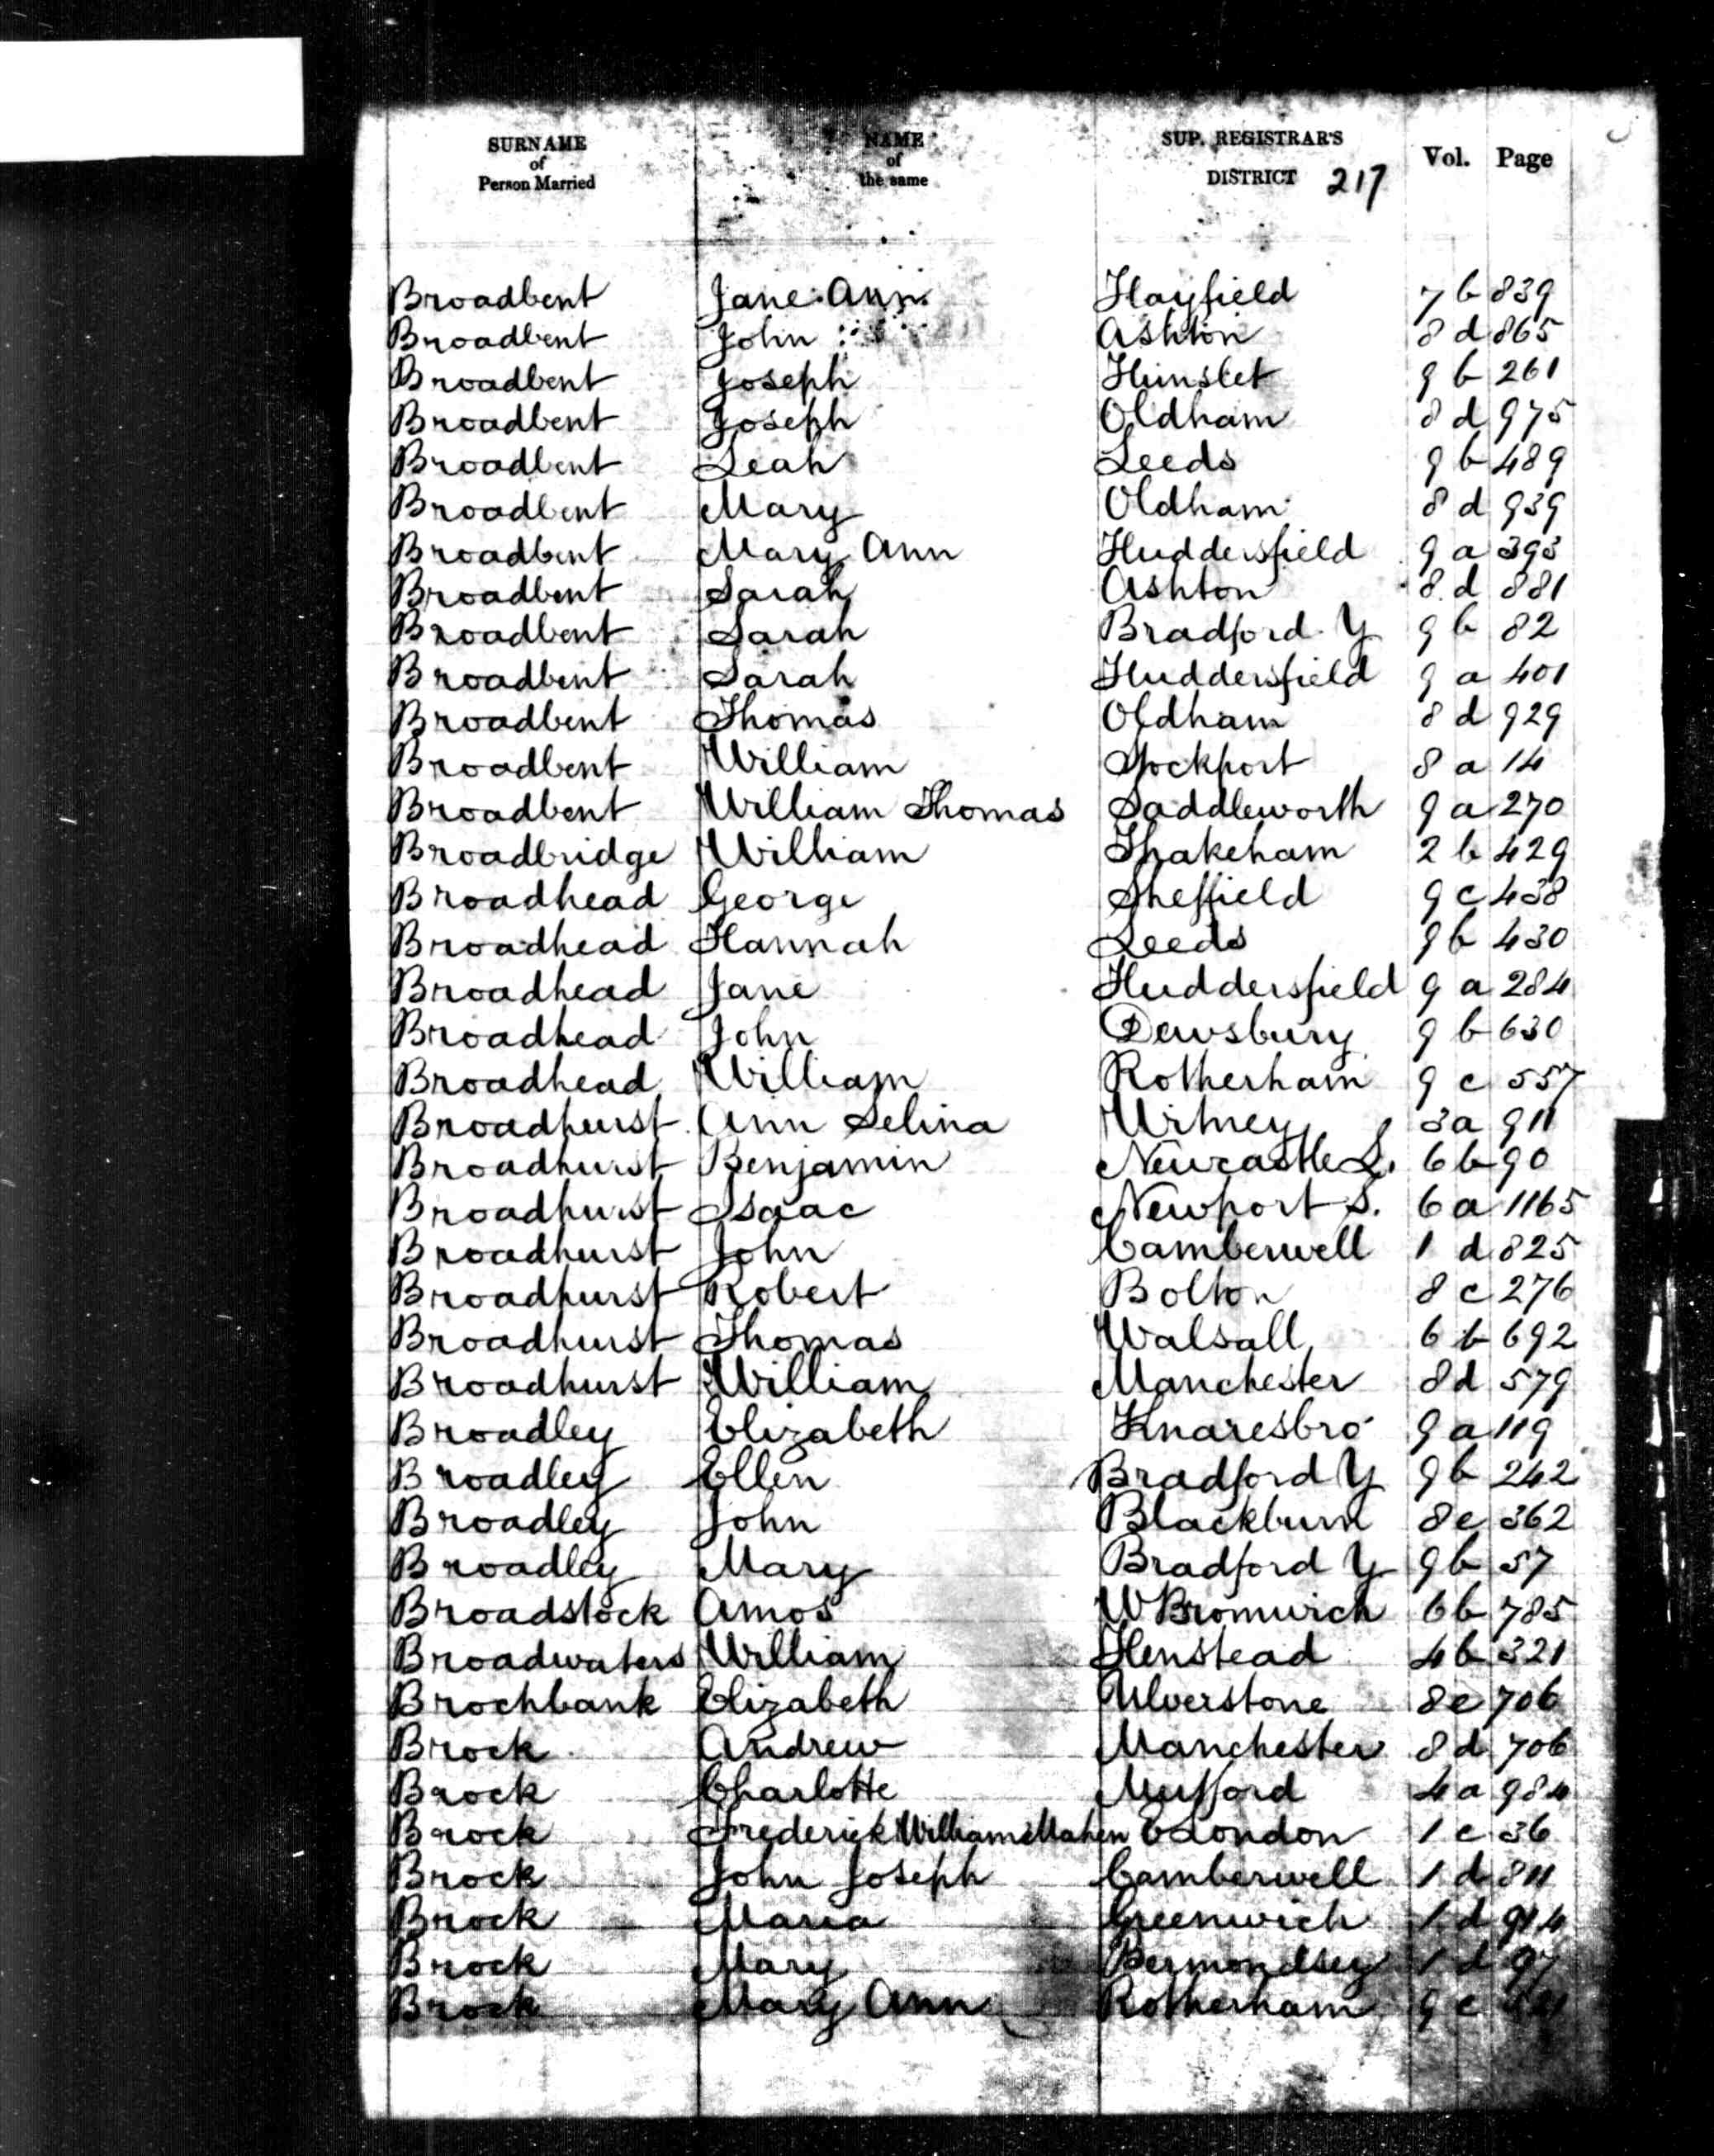 SURNAME of Person Married NAME of the same SUP. REGISTRAR'S DISTRICT 217 Vol. Page
Broadbent Jane Ann Hayfield 7 b 839
Broadbent John Ashton 8 d 865
Broadbent Joseph Hunslet 9 b 261
Broadbent Joseph Oldham 8 d 975
Broadbent Leah Leeds 9 b 489
Broadbent Mary Oldham 8 d 939
Broadbent Mary Ann Huddersfield 9 a 393
Broadbent Sarah Ashton 8 d 881
Broadbent Sarah Bradford Y 9 b 82
Broadbent Sarah Huddersfield 9 a 401
Broadbent Thomas Oldham 8 d 929
Broadbent William Stockport 8 a 14
Broadbent William Thomas Saddleworth 9 a 270
Broadbridge William Thakeham 2 b 429
Broadhead George Sheffield 9 c 438
Broadhead Hannah Leeds 9 b 430
Broadhead Jane Huddersfield 9 a 284
Broadhead John Dewsbury 9 b 630
Broadhead William Rotherham 9 c 557
Broadhurst Ann Selina Witney 3 a 911
Broadhurst Benjamin Newcastle L. 6 b 90
Broadhurst Isaac Newport S. 6 a 1165
Broadhurst John Camberwell 1 d 825
Broadhurst Robert Bolton 8 c 276
Broadhurst Thomas Walsall 6 b 692
Broadhurst William Manchester 8 d 579
Broadley Elizabeth Knaresbro 9 a 119
Broadley Ellen Bradford Y 9 b 242
Broadley John Blackburn 8 e 362
Broadley Mary Bradford Y 9 b 57
Broadstock Amos W Bromwich 6 b 785
Broadwaters William Henstead 4 b 321
Brochbank Elizabeth Ulverstone 8 e 706
Brock Andrew Manchester 8 d 706
Brock Charlotte Mutford 4 a 984
Brock Frederick William Mahen E London 1 c 36
Brock John Joseph Camberwell 1 d 811
Brock Maria Greenwich 1 d 914
Brock Mary Bermondsey 1 d 97
Brock Mary Ann Rotherham 9 c